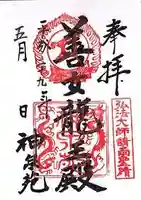 奉拝
善女龍王殿
平成二十九年
五月 日
神泉苑
弘法大師